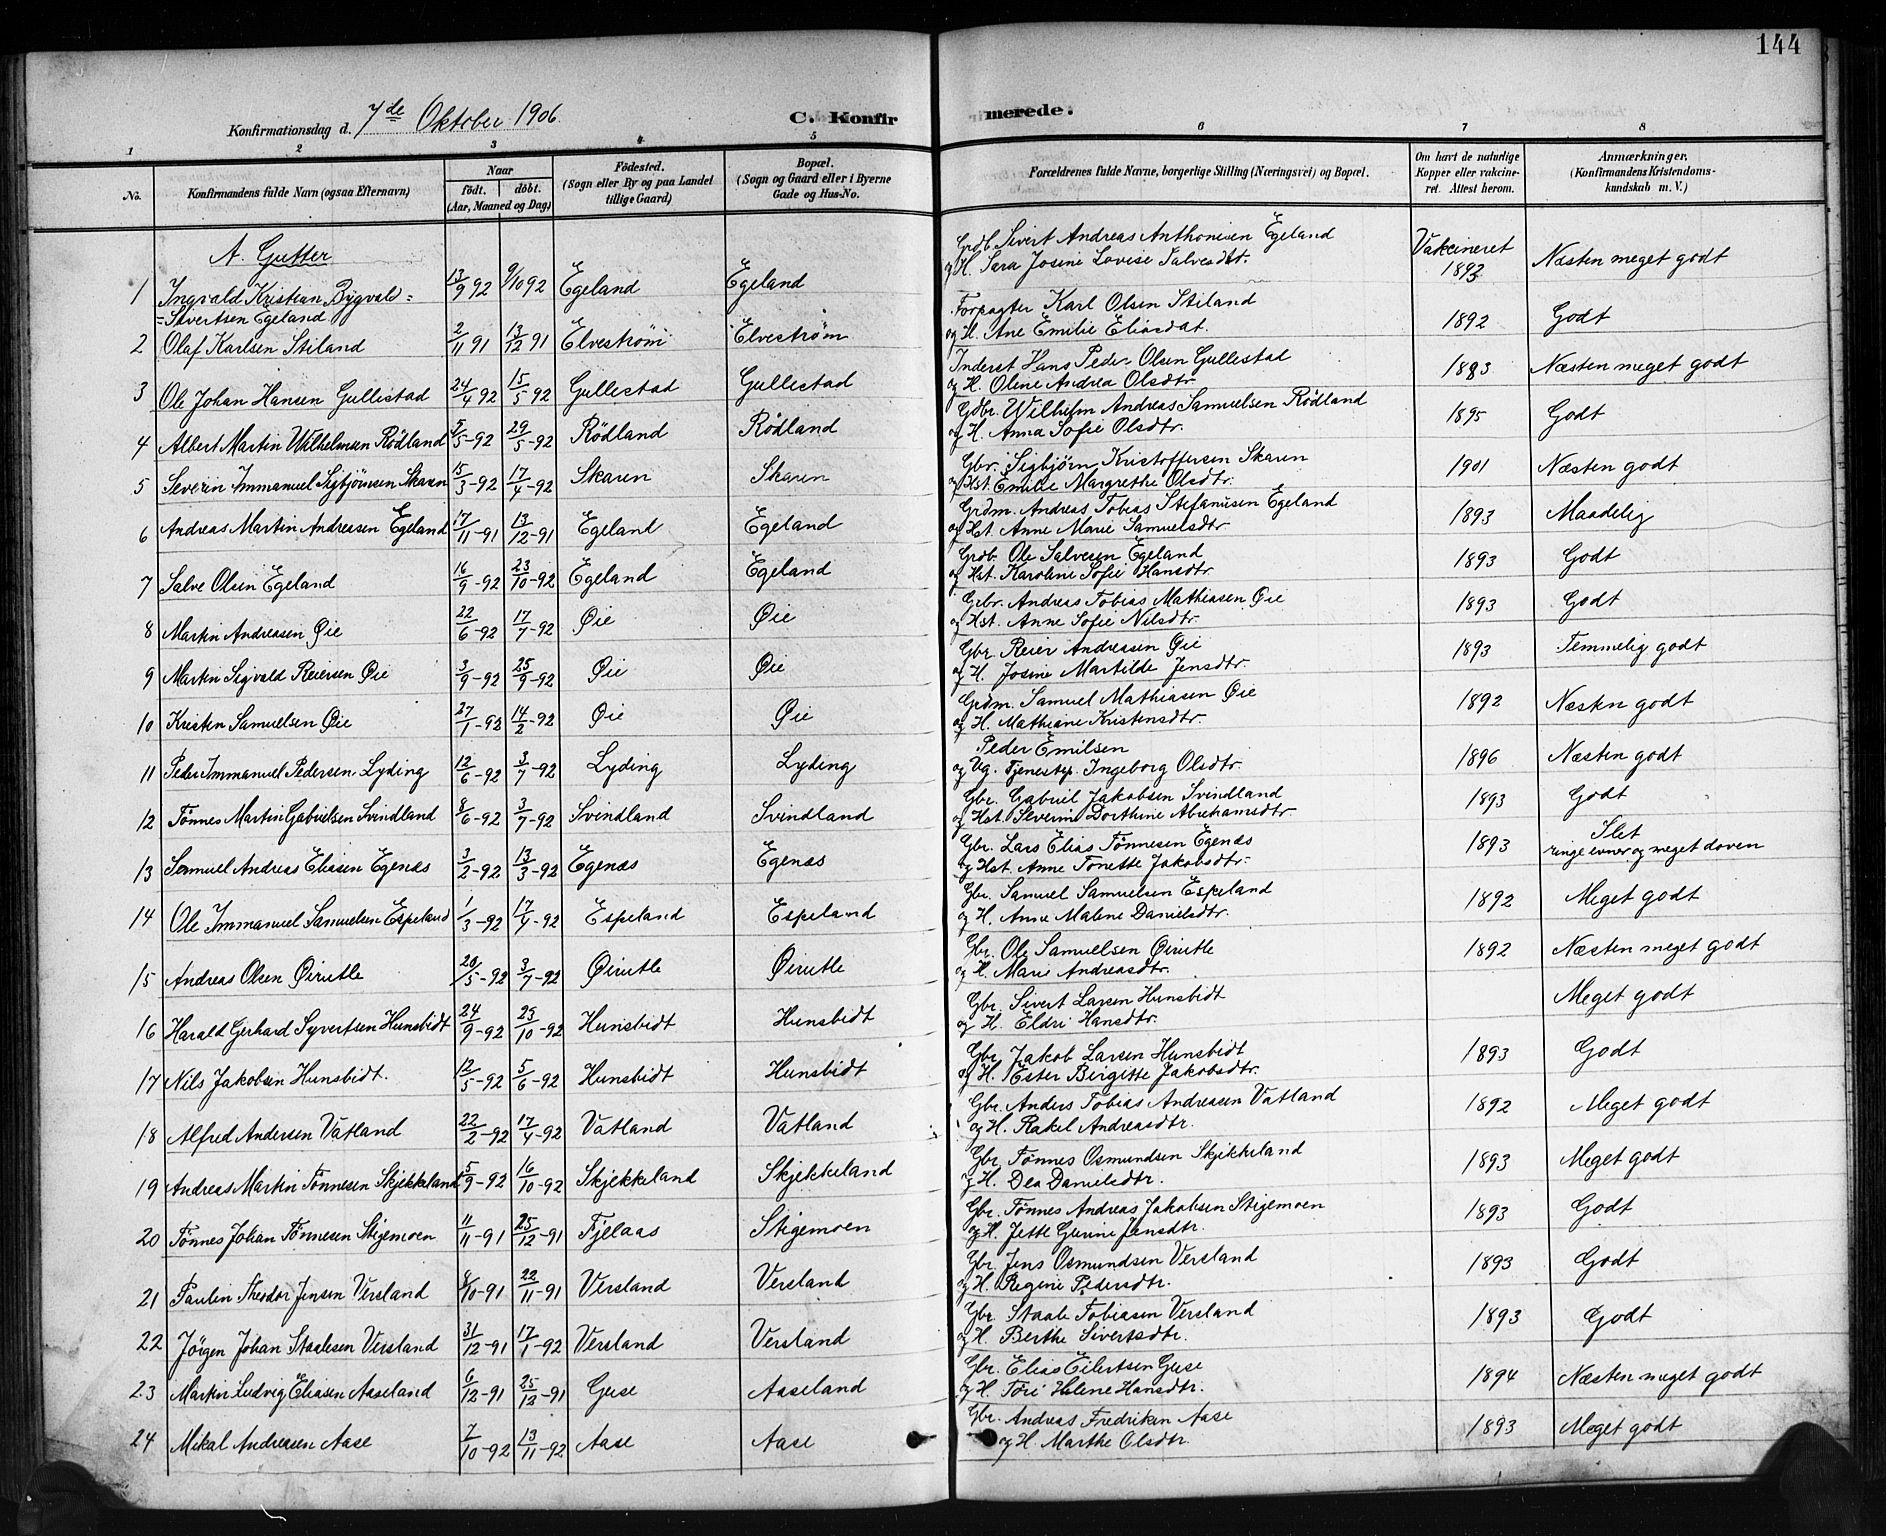 144
Konfirmationsdag d. 7de Oktober 1906.
C. Konfirmerede.
1 2 3 4 5 6 7 8
No.
Konfirmandens fulde Navn (ogsaa Efternavn)
Naar
födt. döbt.
(Aar, Maaned og Dag)
Födested.
(Sogn eller By og paa Landet
tillige Gaard)
Bopæl.
(Sogn og Gaard eller i Byerne
Gade og Hus-No.
Forældrenes fulde Navne, borgerlige Stilling (Næringsvei) og Bopæl.
Om havt de naturlige
Kopper eller vakcine-
ret. Attest herom.
Anmærkninger.
(Konfirmandens Kristendoms-
kundskab m. V.)
A. Gutter
1 Ingvald Kristian Bygvald= 13/9 92 9/10 92 Egeland Egeland Grdb. Sivert Andreas Anthonisen Egeland Vakcineret Næsten meget godt
=Sivertsen Egeland og H. Sara Josine Lovise Salvesdtr. 1893
2 Olaf Karlsen Stiland 2/11 91 13/12 91 Elvestrøm Elvestrøm Forpagter Karl Olsen Stiland 1892 Godt
og H. Ane Emilie Eliasdat.
3 Ole Johan Hansen Gullestad 24/4 92 15/5 92 Gullestad Gullestad Inderst Hans Peder Olsen Gullestad 1893 Næsten meget godt
og H. Olene Andrea Olsdtr.
4 Albert Martin Wilhelmsen Rödland 5/5-92 29/5-92 Rödland Rödland Gdbr. Wilhelm Andreas Samuelsen Rödland 1895 Godt
og H. Anna Sofie Olsdtr.
5 Severin Immanuel Sigbjörnsen Skaren 15/3-92 17/4-92 Skaren Skaren Gbr. Sigbjörn Kristoffersen Skaren 1901 Næsten godt
og Hst. Emilie Margrethe Olsdtr.
6 Andreas Martin Andreasen Egeland 17/11-91 13/12-91 Egeland Egeland Grdm. Andreas Tobias Stefanusen Egeland 1893 Maadelig
og Hst. Anne Marie Samuelsdtr.
7 Salve Olsen Egeland 16/9-92 23/10-92 Egeland Egeland Grdb. Ole Salvesen Egeland 1893 Godt
og Hst. Karoline Sofie Hansdtr.
8 Martin Andreasen Øie 22/6-92 17/7-92 Øie Øie Grbr. Andreas Tobias Mathiasen Øie 1893 Godt
og Hst. Anne Sofie Nilsdtr.
9 Martin Sigvald Reiersen Øie 3/9-92 25/9-92 Øie Øie Gbr. Reier Andreasen Øie 1893 Temmelig godt
og H. Josine Martilde Jensdtr.
10 Kristen Samuelsen Øie 27/1-92 14/2-92 Øie Øie Grdm. Samuel Mathiasen Øie 1892 Næsten godt
og H. Mathiane Kristensdtr.
11 Peder Immanuel Pedersen Lyding 12/6-92 3/7-92 Lyding Lyding Peder Emilsen 1896 Næsten godt
og Ug. Tjenestep. Ingeborg Olsdtr.
12 Tönnes Martin Gabrielsen Svindland 8/6-92 3/7-92 Svindland Svindland Gbr. Gabriel Jakobsen Svindland 1893 Godt
og Hst. Severine Dorthine Abrahamsdtr.
13 Samuel Andreas Eliasen Egenæs 3/2-92 13/3-92 Egenæs Egenæs Gbr. Lars Elias Tönnesen Egenæs 1893 Slet
og Hst. Anne Tonette Jakobsdtr. ringe evner og meget doven
14 Ole Immanuel Samuelsen Espeland 1/3-92 17/4-92 Espeland Espeland Gbr. Samuel Samuelsen Espeland 1892 Meget godt
og H. Anne Malene Danielsdtr.
15 Andreas Olsen Øirutle 20/5-92 3/7-92 Øirutle Øirutle Gbr. Ole Samuelsen Øirutle 1892 Næsten meget godt
og H. Marie Andreasdtr.
16 Harald Gerhard Syvertsen Hunsbidt 24/9-92 23/10-92 Hunsbidt Hunsbidt Gbr. Sivert Larsen Hunsbidt Meget godt
og H. Eldri Hansdtr.
17 Nils Jakobsen Hunsbidt. 12/5-92 5/6-92 Hunsbidt Hunsbidt Gbr. Jakob Larsen Hunsbidt 1893 Godt
og H. Ester Birgitte Jakobsdtr.
18 Alfred Andersen Vatland 22/2-92 17/4-92 Vatland Vatland Gbr. Anders Tobias Andreasen Vatland 1892 Meget godt
og H. Rakel Andreasdtr.
19 Andreas Martin Tönnesen Skjekkeland 5/9-92 16/10-92 Skjekkeland Skjekkeland Gbr. Tönnes Osmundsen Skjekkeland 1893 Meget godt
og H. Dea Danielsdtr.
20 Tönnes Johan Tönnesen Stigemoen 11/11-91 25/12-91 Fjelaas Stigemoen Gbr. Tönnes Andreas Jakobsen Stigemoen 1893 Godt
og H. Jette Gurine Jensdtr.
21 Paulin Theodor Jensen Versland 8/10-91 22/11-91 Versland Versland Gbr. Jens Osmundsen Versland 1893 Godt
og H. Regine Pedersdtr.
22 Jörgen Johan Staalesen Versland 31/12-91 17/1-92 Versland Versland Gbr. Staale Tobiasen Versland 1893 Godt
og H. Berthe Sivertsdtr.
23 Martin Ludvig Eliasen Aaseland 6/12-91 25/12-91 Guse Aaseland Gbr. Elias Eilertsen Guse 1894 Næsten meget godt
og H. Tori Helene Hansdtr.
24 Mikal Andreasen Aase 7/10-92 13/11-92 Aase Aase Gbr. Andreas Fredriksen Aase 1893 Meget godt
og H. Marthe Olsdtr.